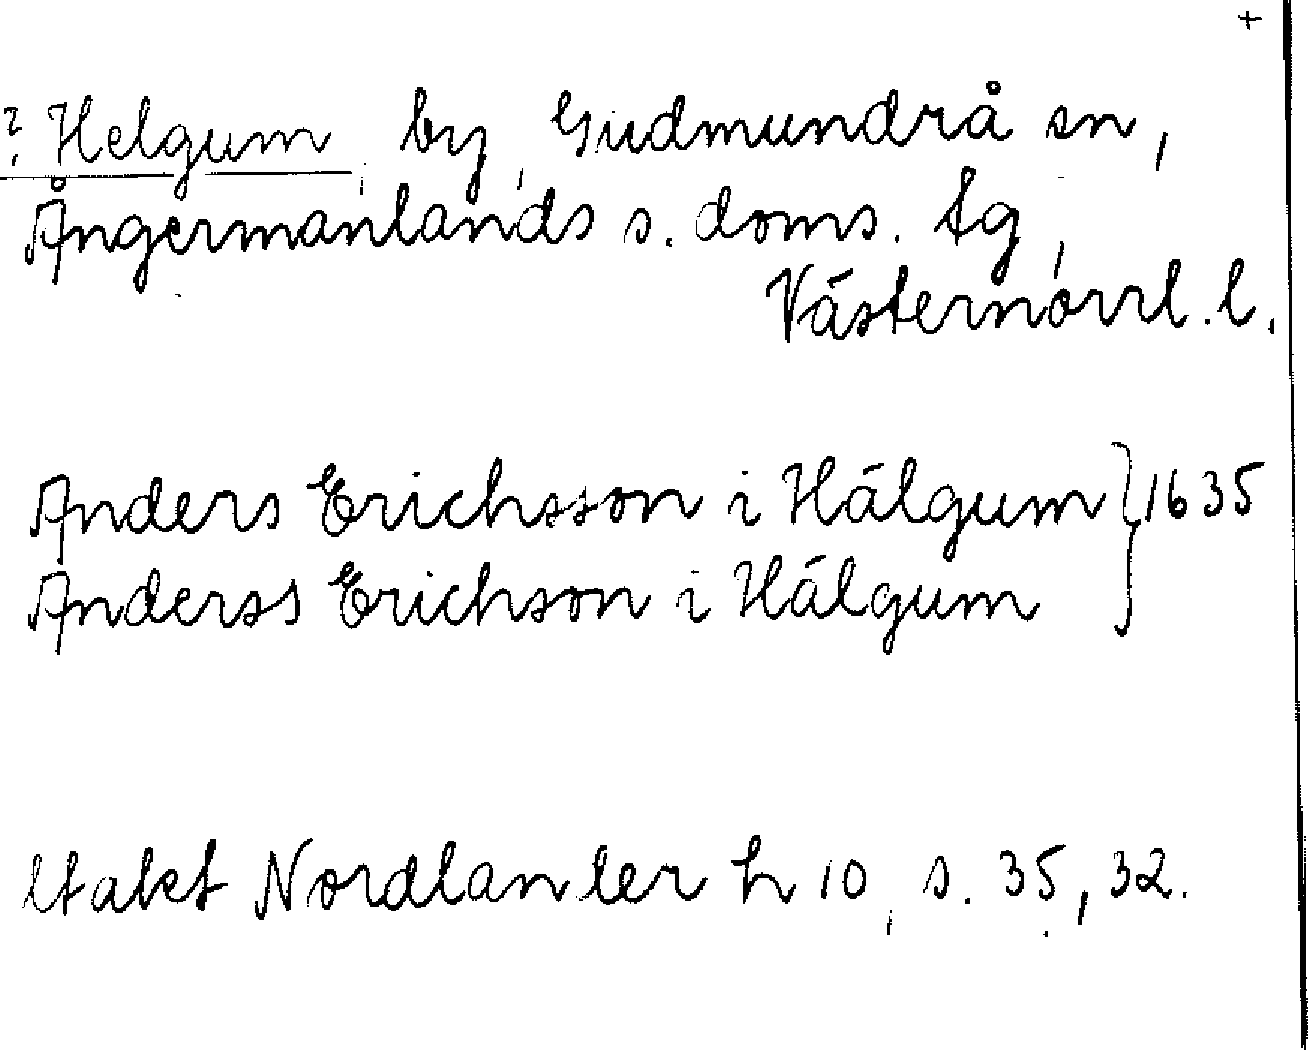 +
? Helgum, by, Gudmundrå sn,
Ångermanlands s. doms. tg,
Västernorrl. l.
Anders Erichsson i Hälgum } 1635
Anderss Erichson i Hälgum
Utakt Nordlander h 10, s. 35, 32.